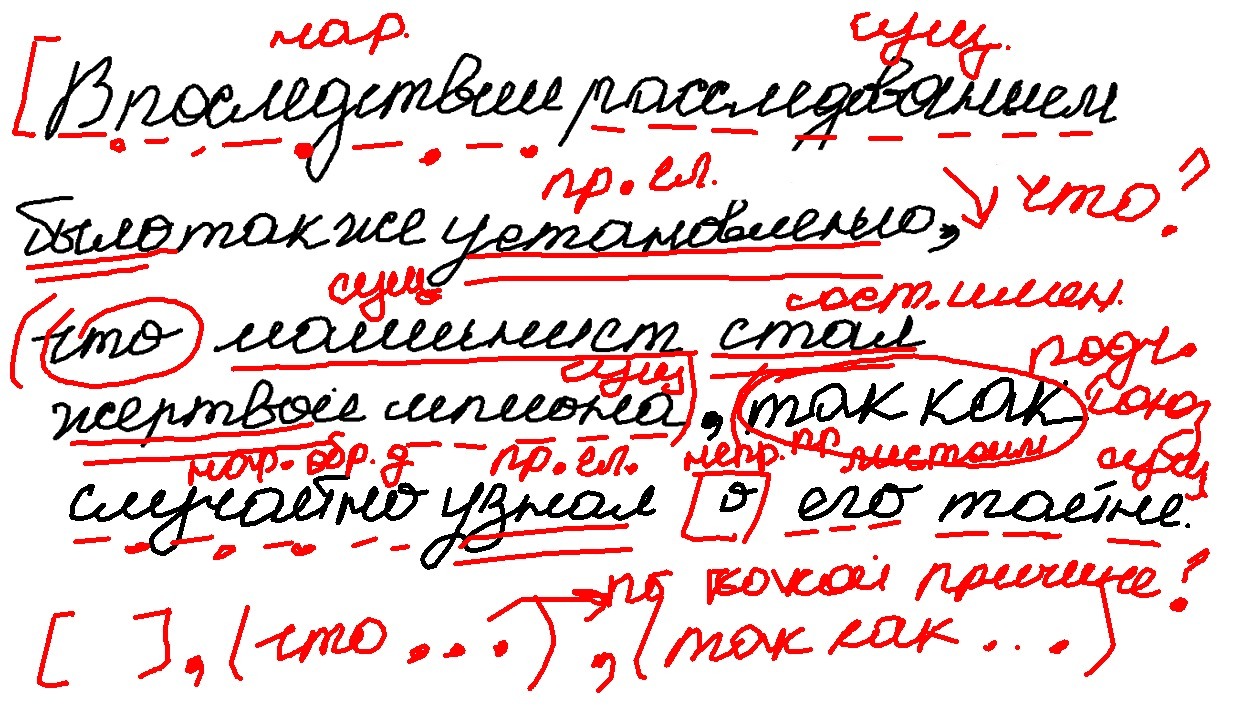 нар. сущ.
[Впоследствии расследованием
пр. гл.
было также установлено, что?
сущ. сост. имен.
(что машинист стал
подч. союз
сущ
жертвой шпиона), (так как
нар. обр. д пр. гл. непр. пр листоим сущ
случайно узнал о его тайне.
по какой причине?
[ ], (что ...), (так как ...)